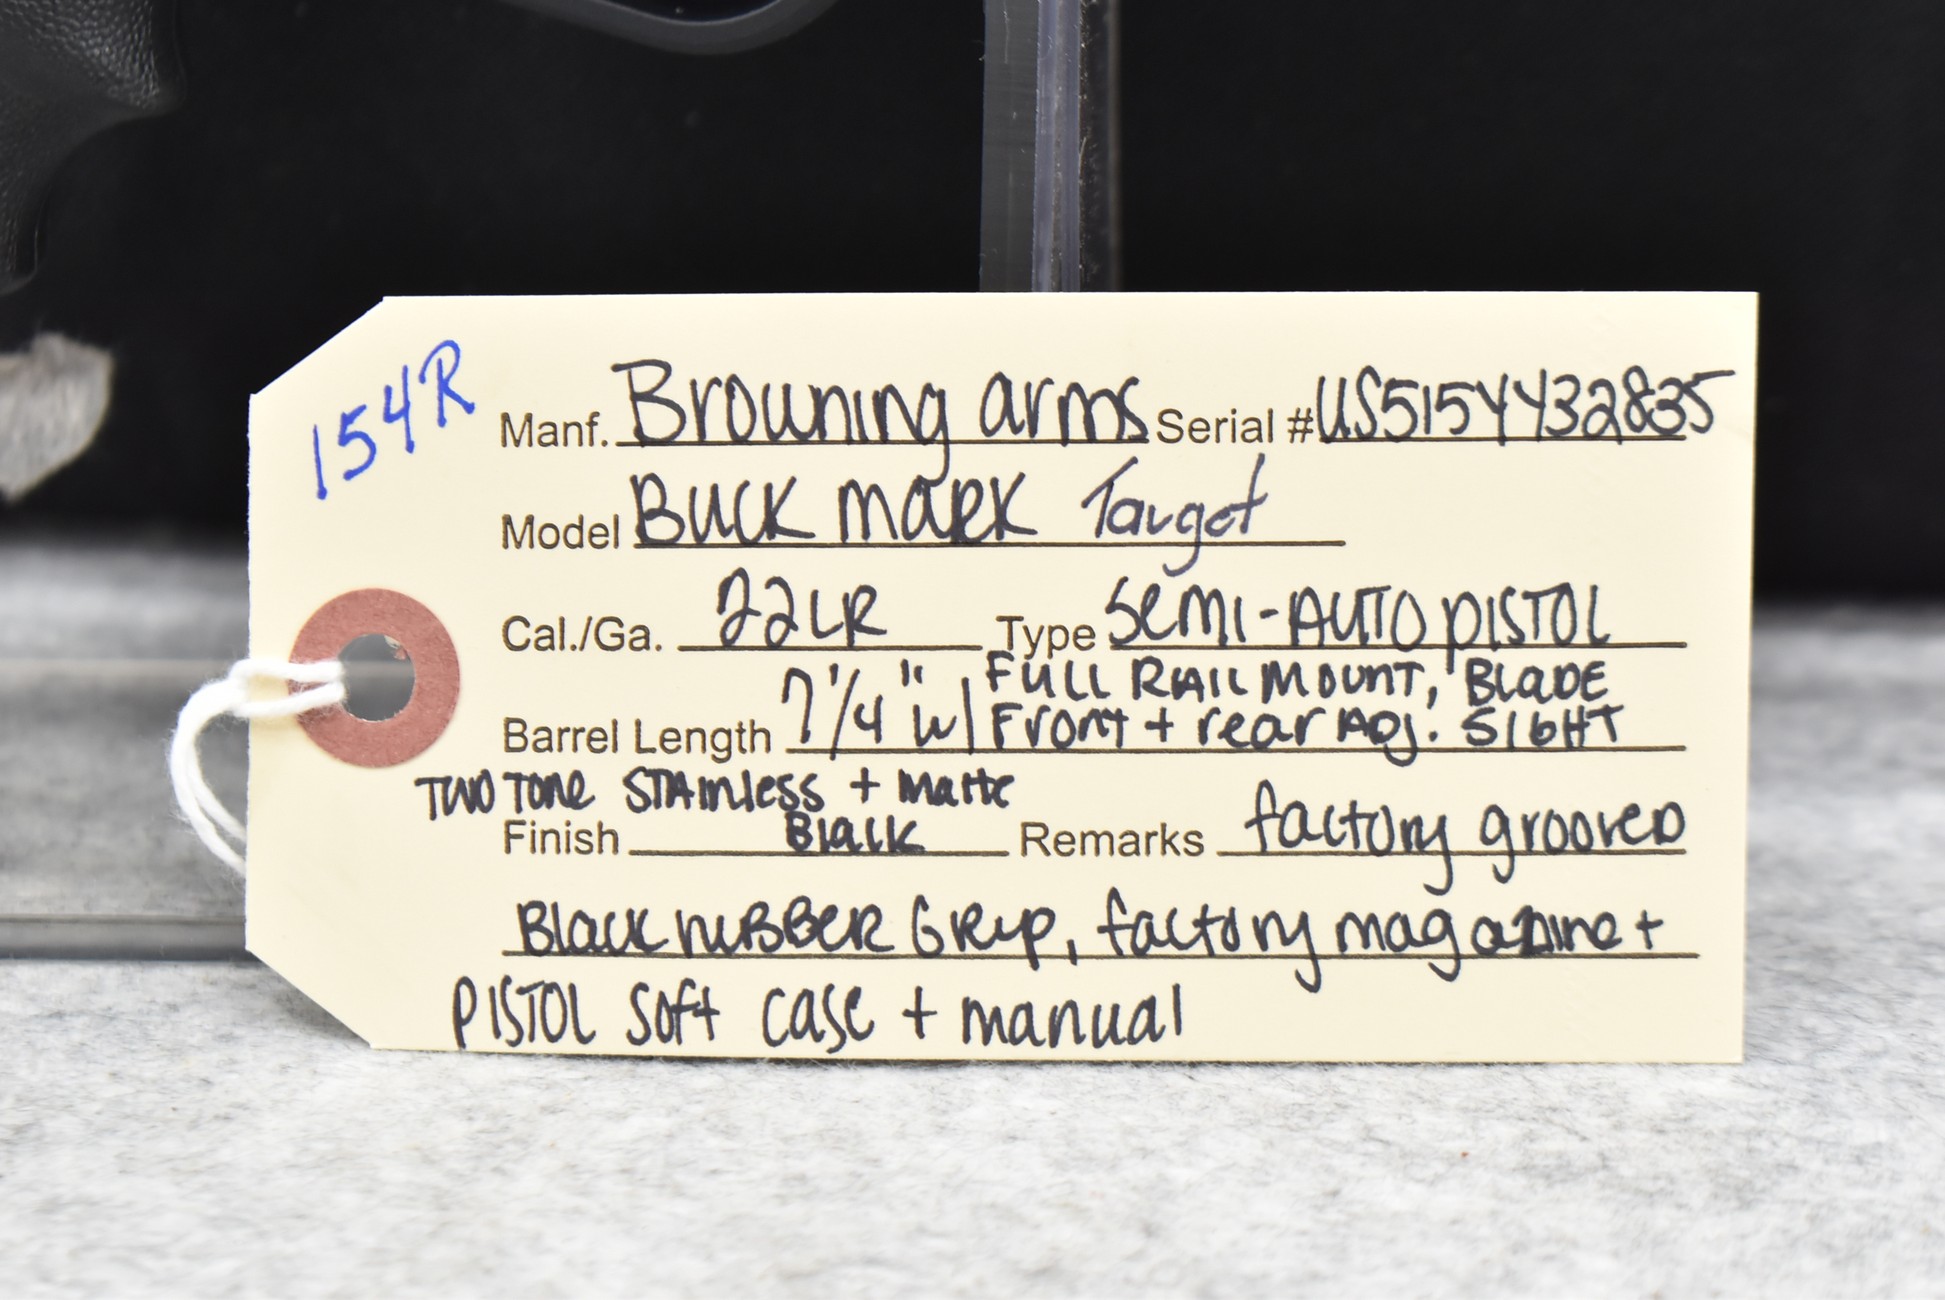 154R
Manf. Browning arms Serial # US5154Y32835
Model BUCK MARK Target
Cal./Ga. 22LR Type SEMI-AUTO PISTOL
Barrel Length 7 1/4" w/ FULL RAIL MOUNT, BLADE
Front + rear ADJ. SIGHT
TWO TONE STAINless + Matte
Finish Black Remarks factory grooved
Black rubber Grip, factory magazine +
PISTOL soft case + manual